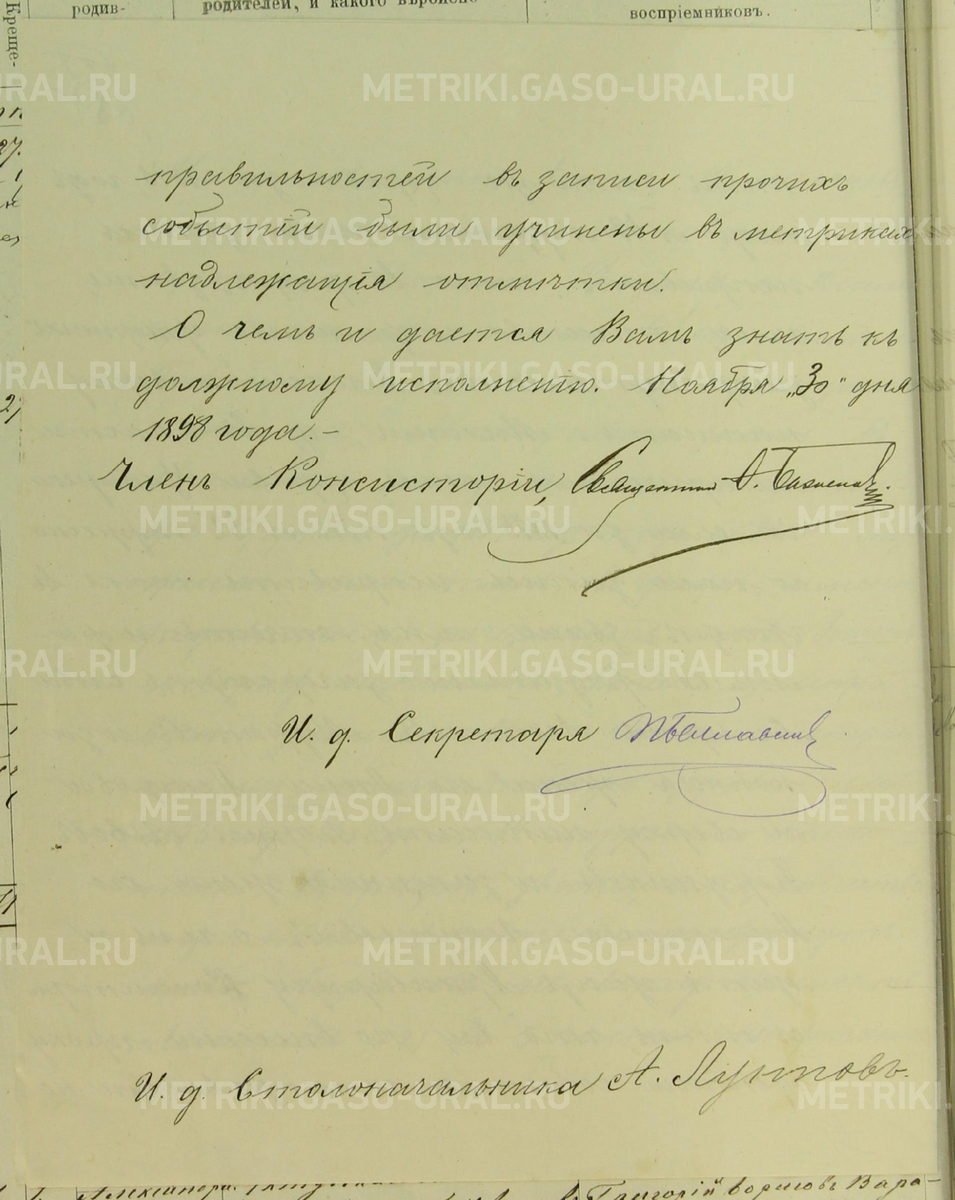 Креще-
родив-
родителей, и какого вѣроиспо-
воспріемниковъ.
правильностей въ записи прочихъ
событій были учинены въ метрикахъ
надлежащія отмѣтки.
О чемъ и дается Вамъ знать къ
должному исполненію. Ноября „30" дня
1898 года.-
Членъ Консисторіи, Священникъ
И. д. Секретаря
И. д. Столоначальника А.
Григорій
METRIKI.GASO-URAL.RU